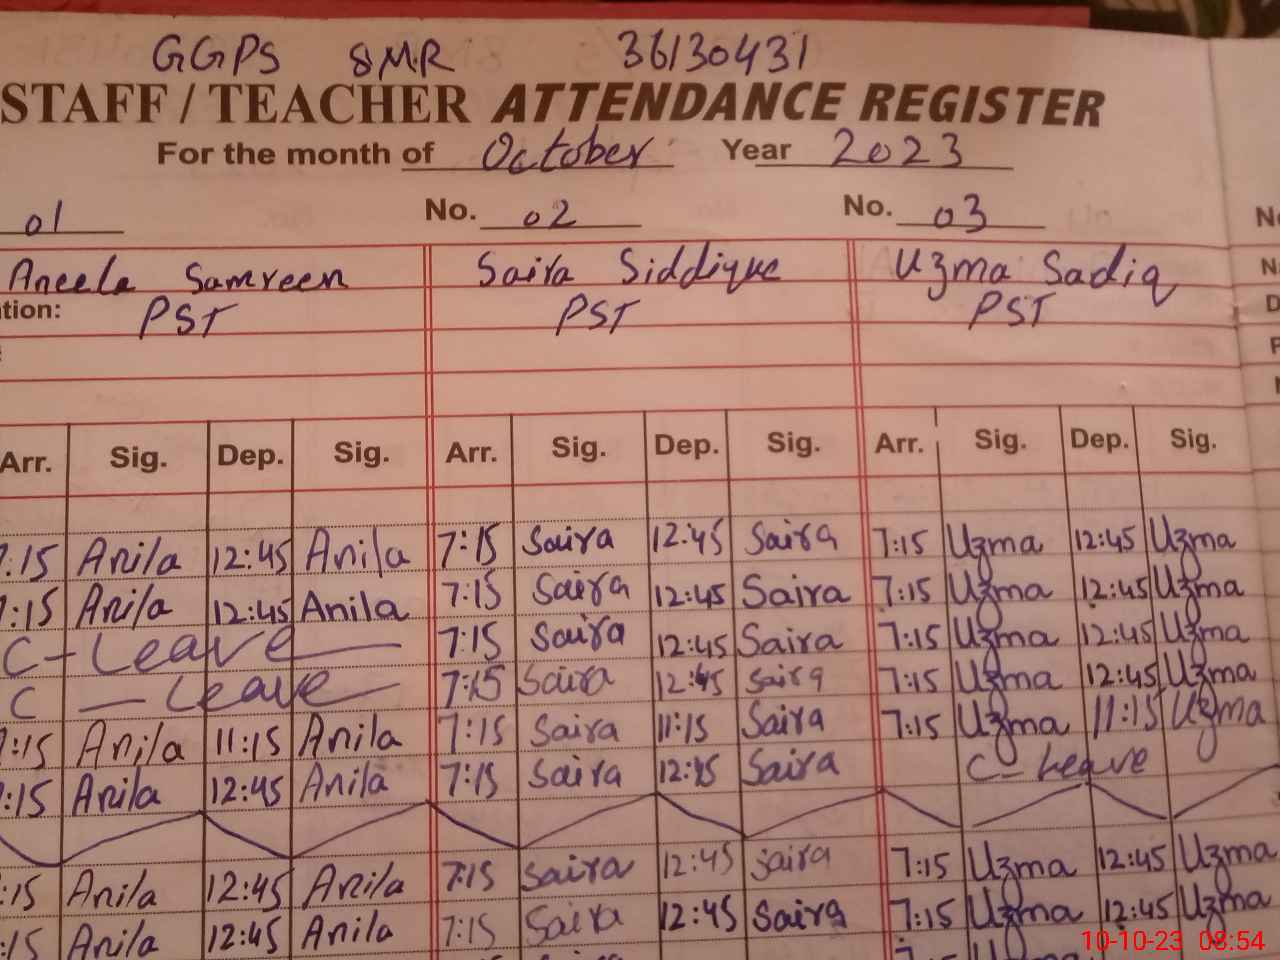 GGPS 8MR 36130431
STAFF / TEACHER ATTENDANCE REGISTER
For the month of October Year 2023
01 No. 02 No. 03
Aneela Samreen Saira Siddique Uzma Sadiq
tion: PST PST PST
Arr. Sig. Dep. Sig. Arr. Sig. Dep. Sig. Arr. Sig. Dep. Sig.
7:15 Anila 12:45 Anila 7:15 Saira 12:45 Saira 7:15 Uzma 12:45 Uzma
7:15 Anila 12:45 Anila 7:15 Saira 12:45 Saira 7:15 Uzma 12:45 Uzma
C-Leave 7:15 Saira 12:45 Saira 7:15 Uzma 12:45 Uzma
C - Leave 7:15 Saira 12:45 Saira 7:15 Uzma 12:45 Uzma
7:15 Anila 11:15 Anila 7:15 Saira 11:15 Saira 7:15 Uzma 11:15 Uzma
:15 Anila 12:45 Anila 7:15 Saira 12:45 Saira C-Leave
:15 Anila 12:45 Anila 7:15 Saira 12:45 Saira 7:15 Uzma 12:45 Uzma
:15 Anila 12:45 Anila 7:15 Saira 12:45 Saira 7:15 Uzma 12:45 Uzma
10-10-23 08:54